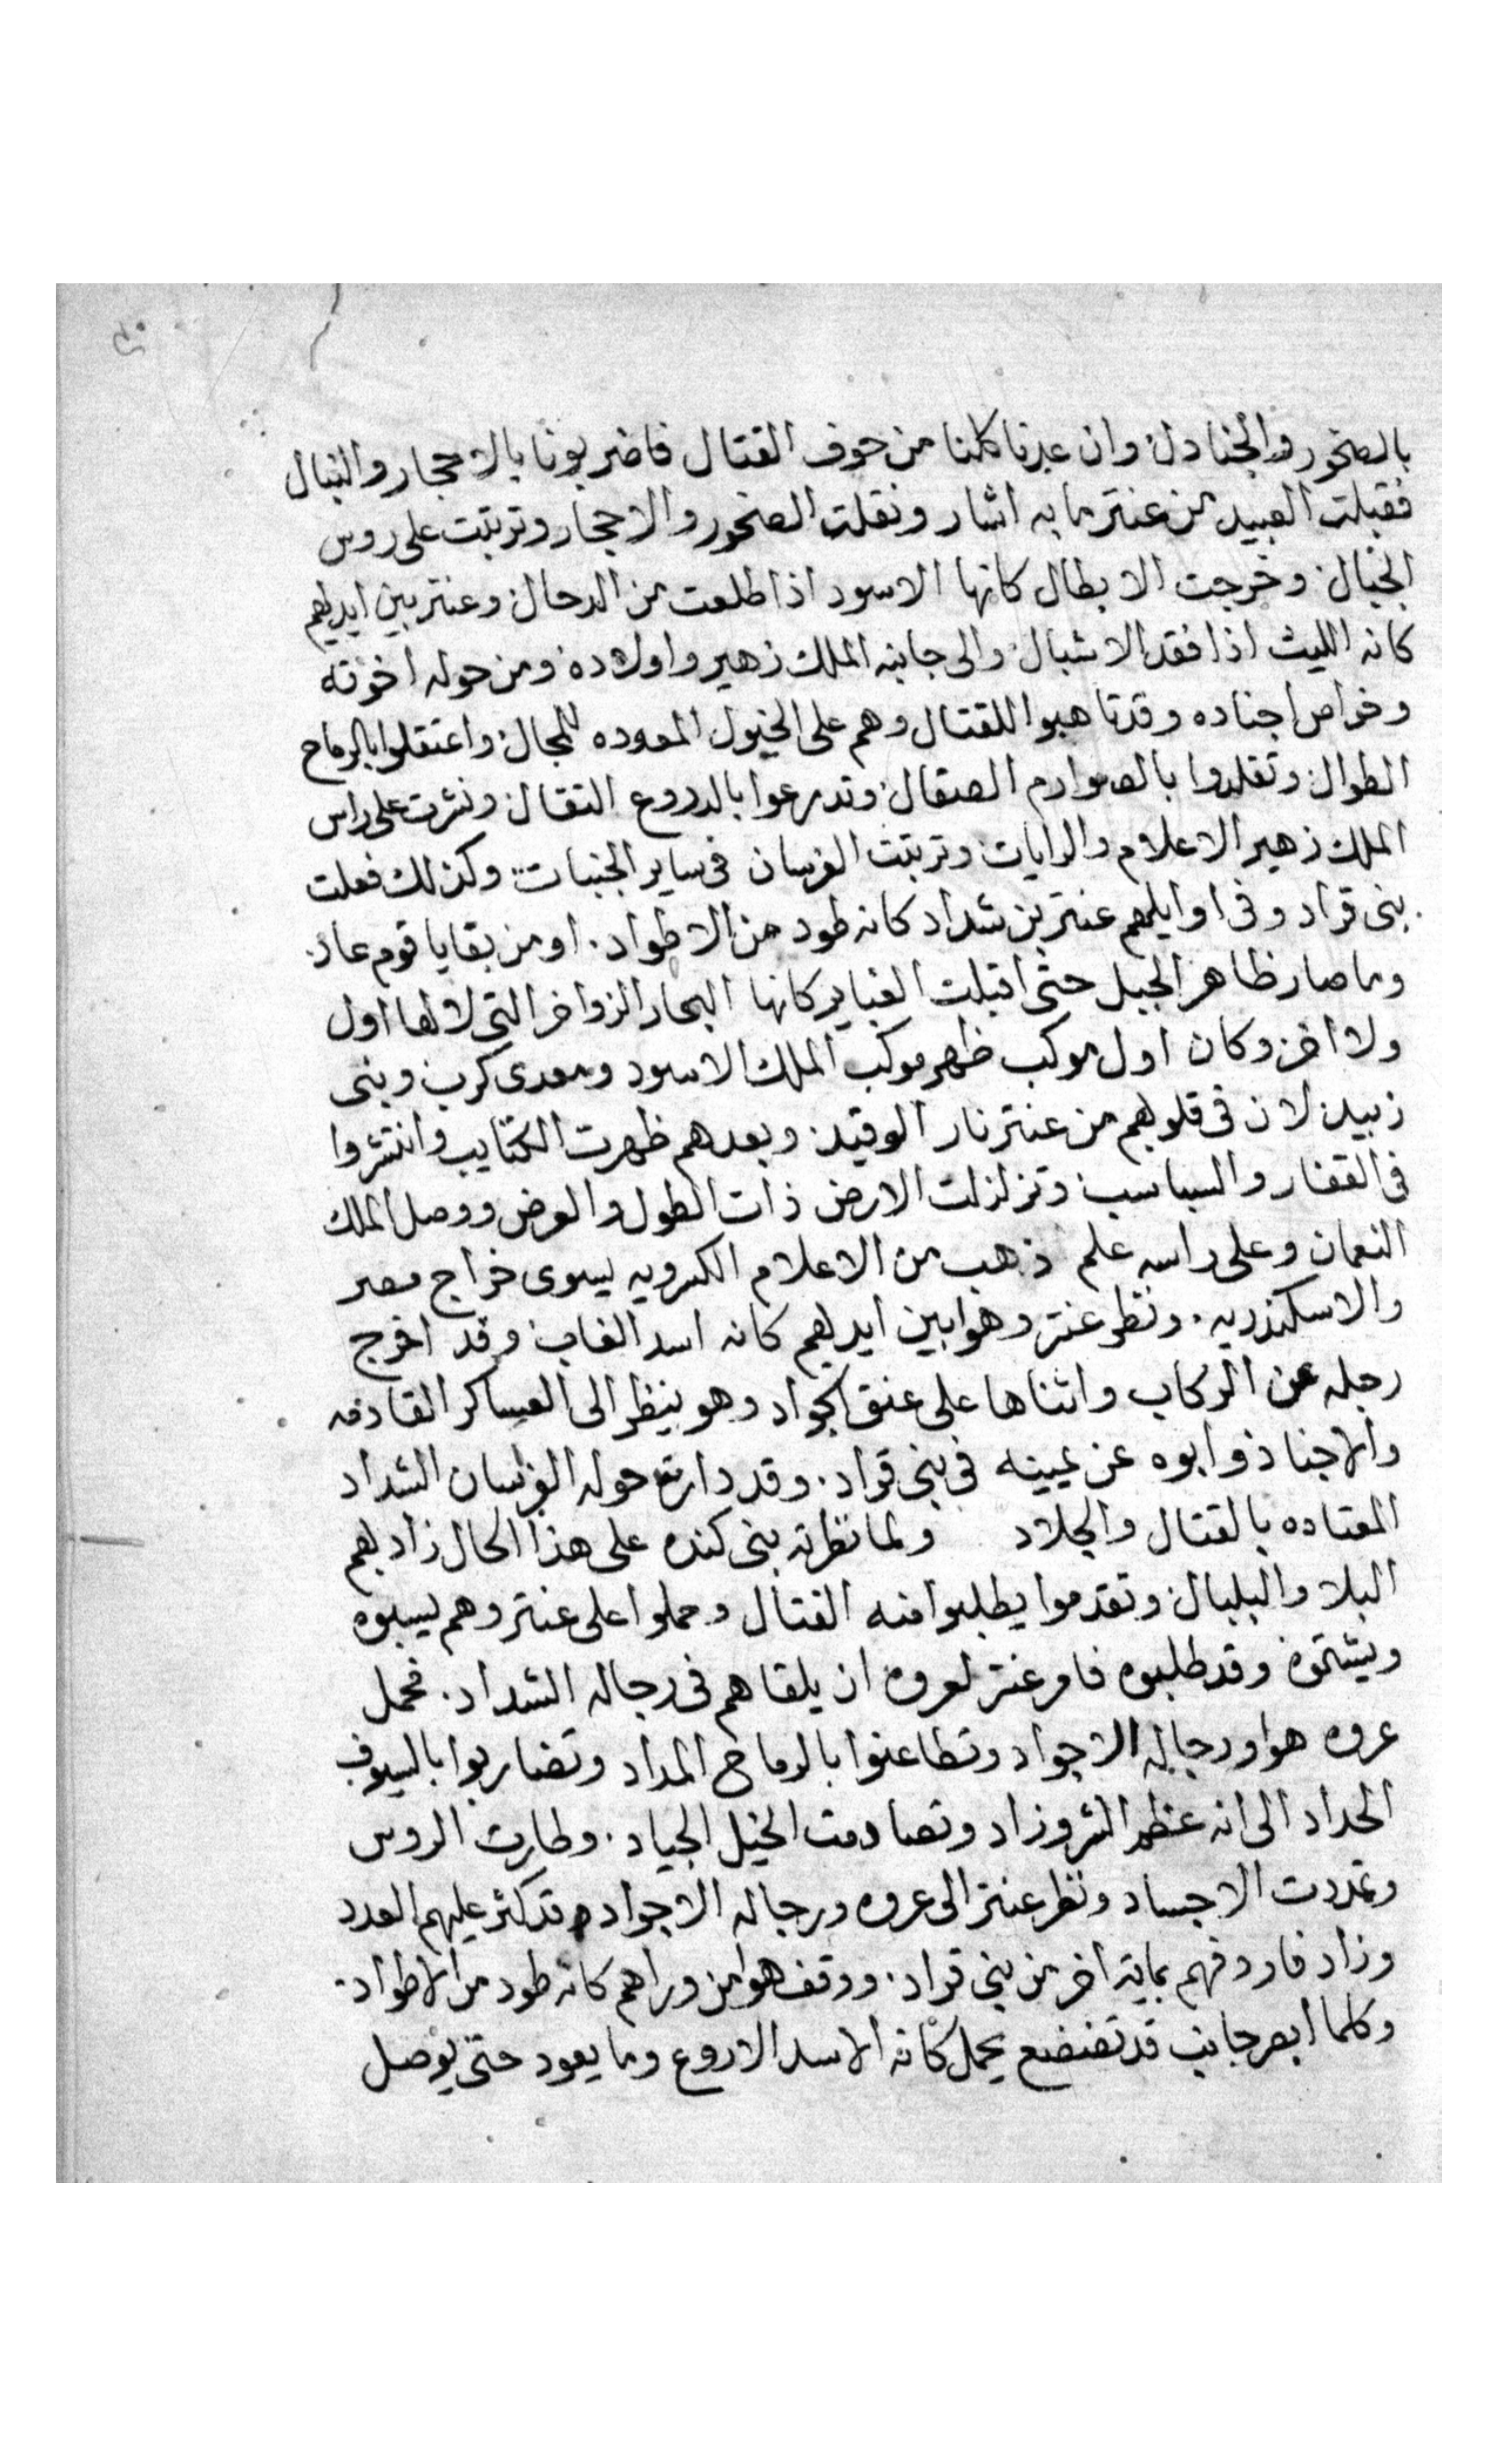 بالصخور والجنادل وان عدنا كلنا من خوف القتال فاضربونا بالاحجار والنبال
فقبلت العبيد من عنتر ما به اشار ونقلت الصخور والاحجار وترتبت على روس
الجبال وخرجت الابطال كانها الاسود اذا طلعت من الدحال وعنتر بين ايديهم
كانه الليث اذا فقد الاشبال والى جانبه الملك زهير واولاده ومن حوله اخوته
وخواص اجناده وقد تاهبوا للقتال وهم على الخيول المعوده للمجال واعتقلوا بالرماح
الطوال وتقلدوا بالصوارم الصقال وتدرعوا بالدروع الثقال ونشرت على راس
الملك زهير الاعلام والرايات وترتبت الفرسان فى ساير الجنبات وكذلك فعلت
بنى قراد وفى اوايلهم عنتر بن شداد كانه طود من الاطواد. او من بقايا قوم عاد.
وما صار ظاهر الجبل حتى اقبلت الغباير كانها البحار الزواخر التى لا لها اول
ولا اخر وكان اول موكب ظهر موكب الملك الاسود ومعدى كرب وبنى
زبيد لان فى قلوبهم من عنتر نار الوقيد وبعدهم ظهرت الكتايب وانتشروا
فى القفار والسباسب وتزلزلت الارض ذات الطول والعرض ووصل الملك
النعمان وعلى راسه علم ذهب من الاعلام الكسرويه يسوى خراج مصر
والاسكندريه. ونظر عنتر وهوا بين ايديهم كانه اسد الغاب وقد اخرج
رجله من الركاب واثناها على عنق الجواد وهو ينظر الى العساكر القادمه
والاجناد وابوه عن يمينه فى بنى قراد. وقد دارت حوله الفرسان الشداد
المعتاده بالقتال والجلاد ولما نظرته بنى كنده على هذا الحال زاد بهم
البلا والبلبال وتقدموا يطلبوا منه القتال وحملوا على عنتر وهم يسبوه
ويشتموه وقد طلبوه فامر عنتر لعروه ان يلقاهم فى رجاله الشداد. فحمل
عروه هوا ورجاله الاجواد وتطاعنوا بالرماح المداد وتضاربوا بالسيوف
الحداد الى انه عظم الشر وزاد وتصادمت الخيل الجياد. وطارت الروس
وتمددت الاجساد ونظر عنتر الى عروه ورجاله الاجواد وقد كثر عليهم العدد
وزاد فاردفهم بمايه اخر من بنى قراد. ووقف هوا من وراهم كانه طود من الاطواد.
وكلما ابصر جانب قد تضعضع يحمل كانه الاسد الاروع وما يعود حتى يوصل